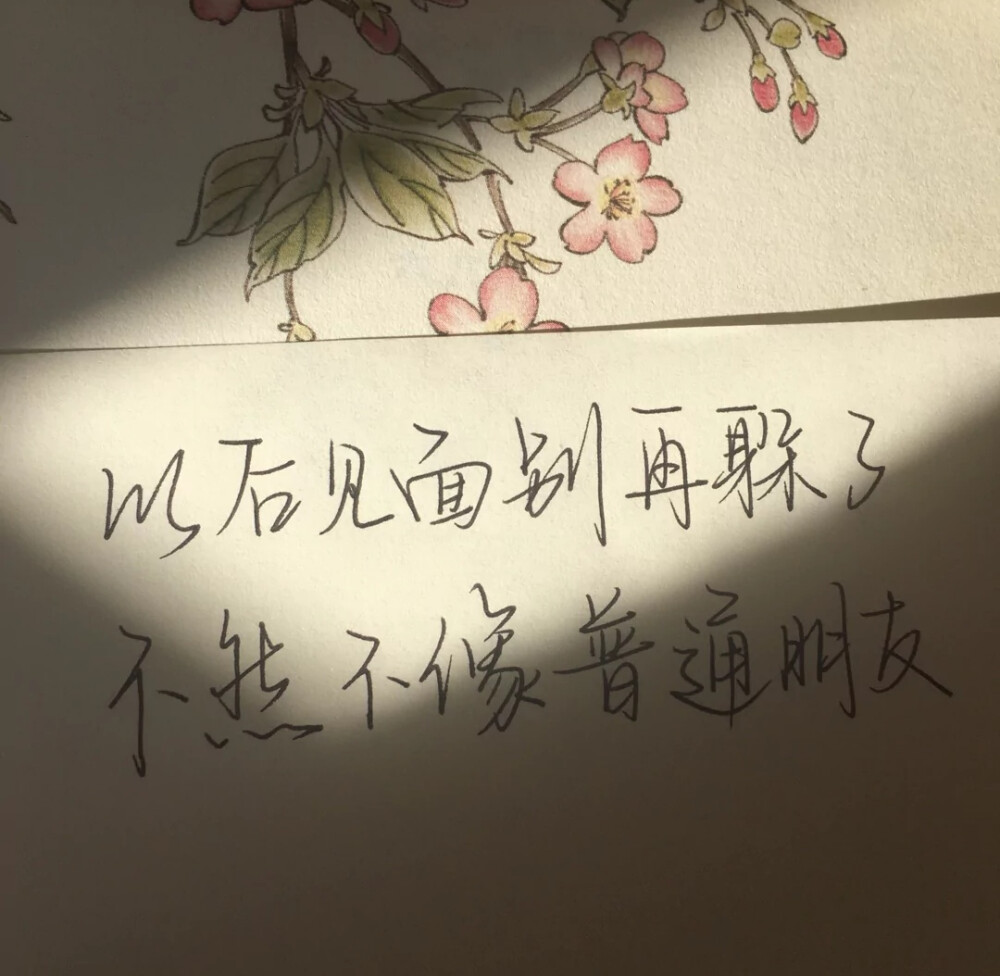 以后见面别再躲了
不然不像普通朋友